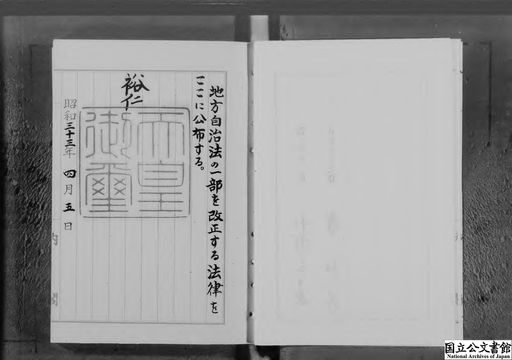 地方自治法の一部を改正する法律を
ここに公布する。
裕仁
天皇
御璽
昭和三十三年四月五日
内閣
国立公文書館
National Archives of Japan